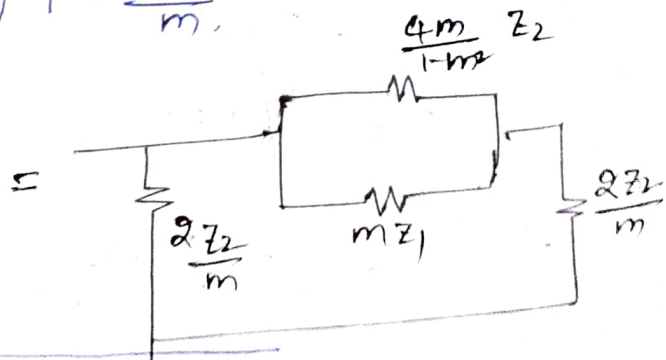 m.
4m/1-m² Z₂
=
2Z₂/m
mZ₁
2Z₂/m